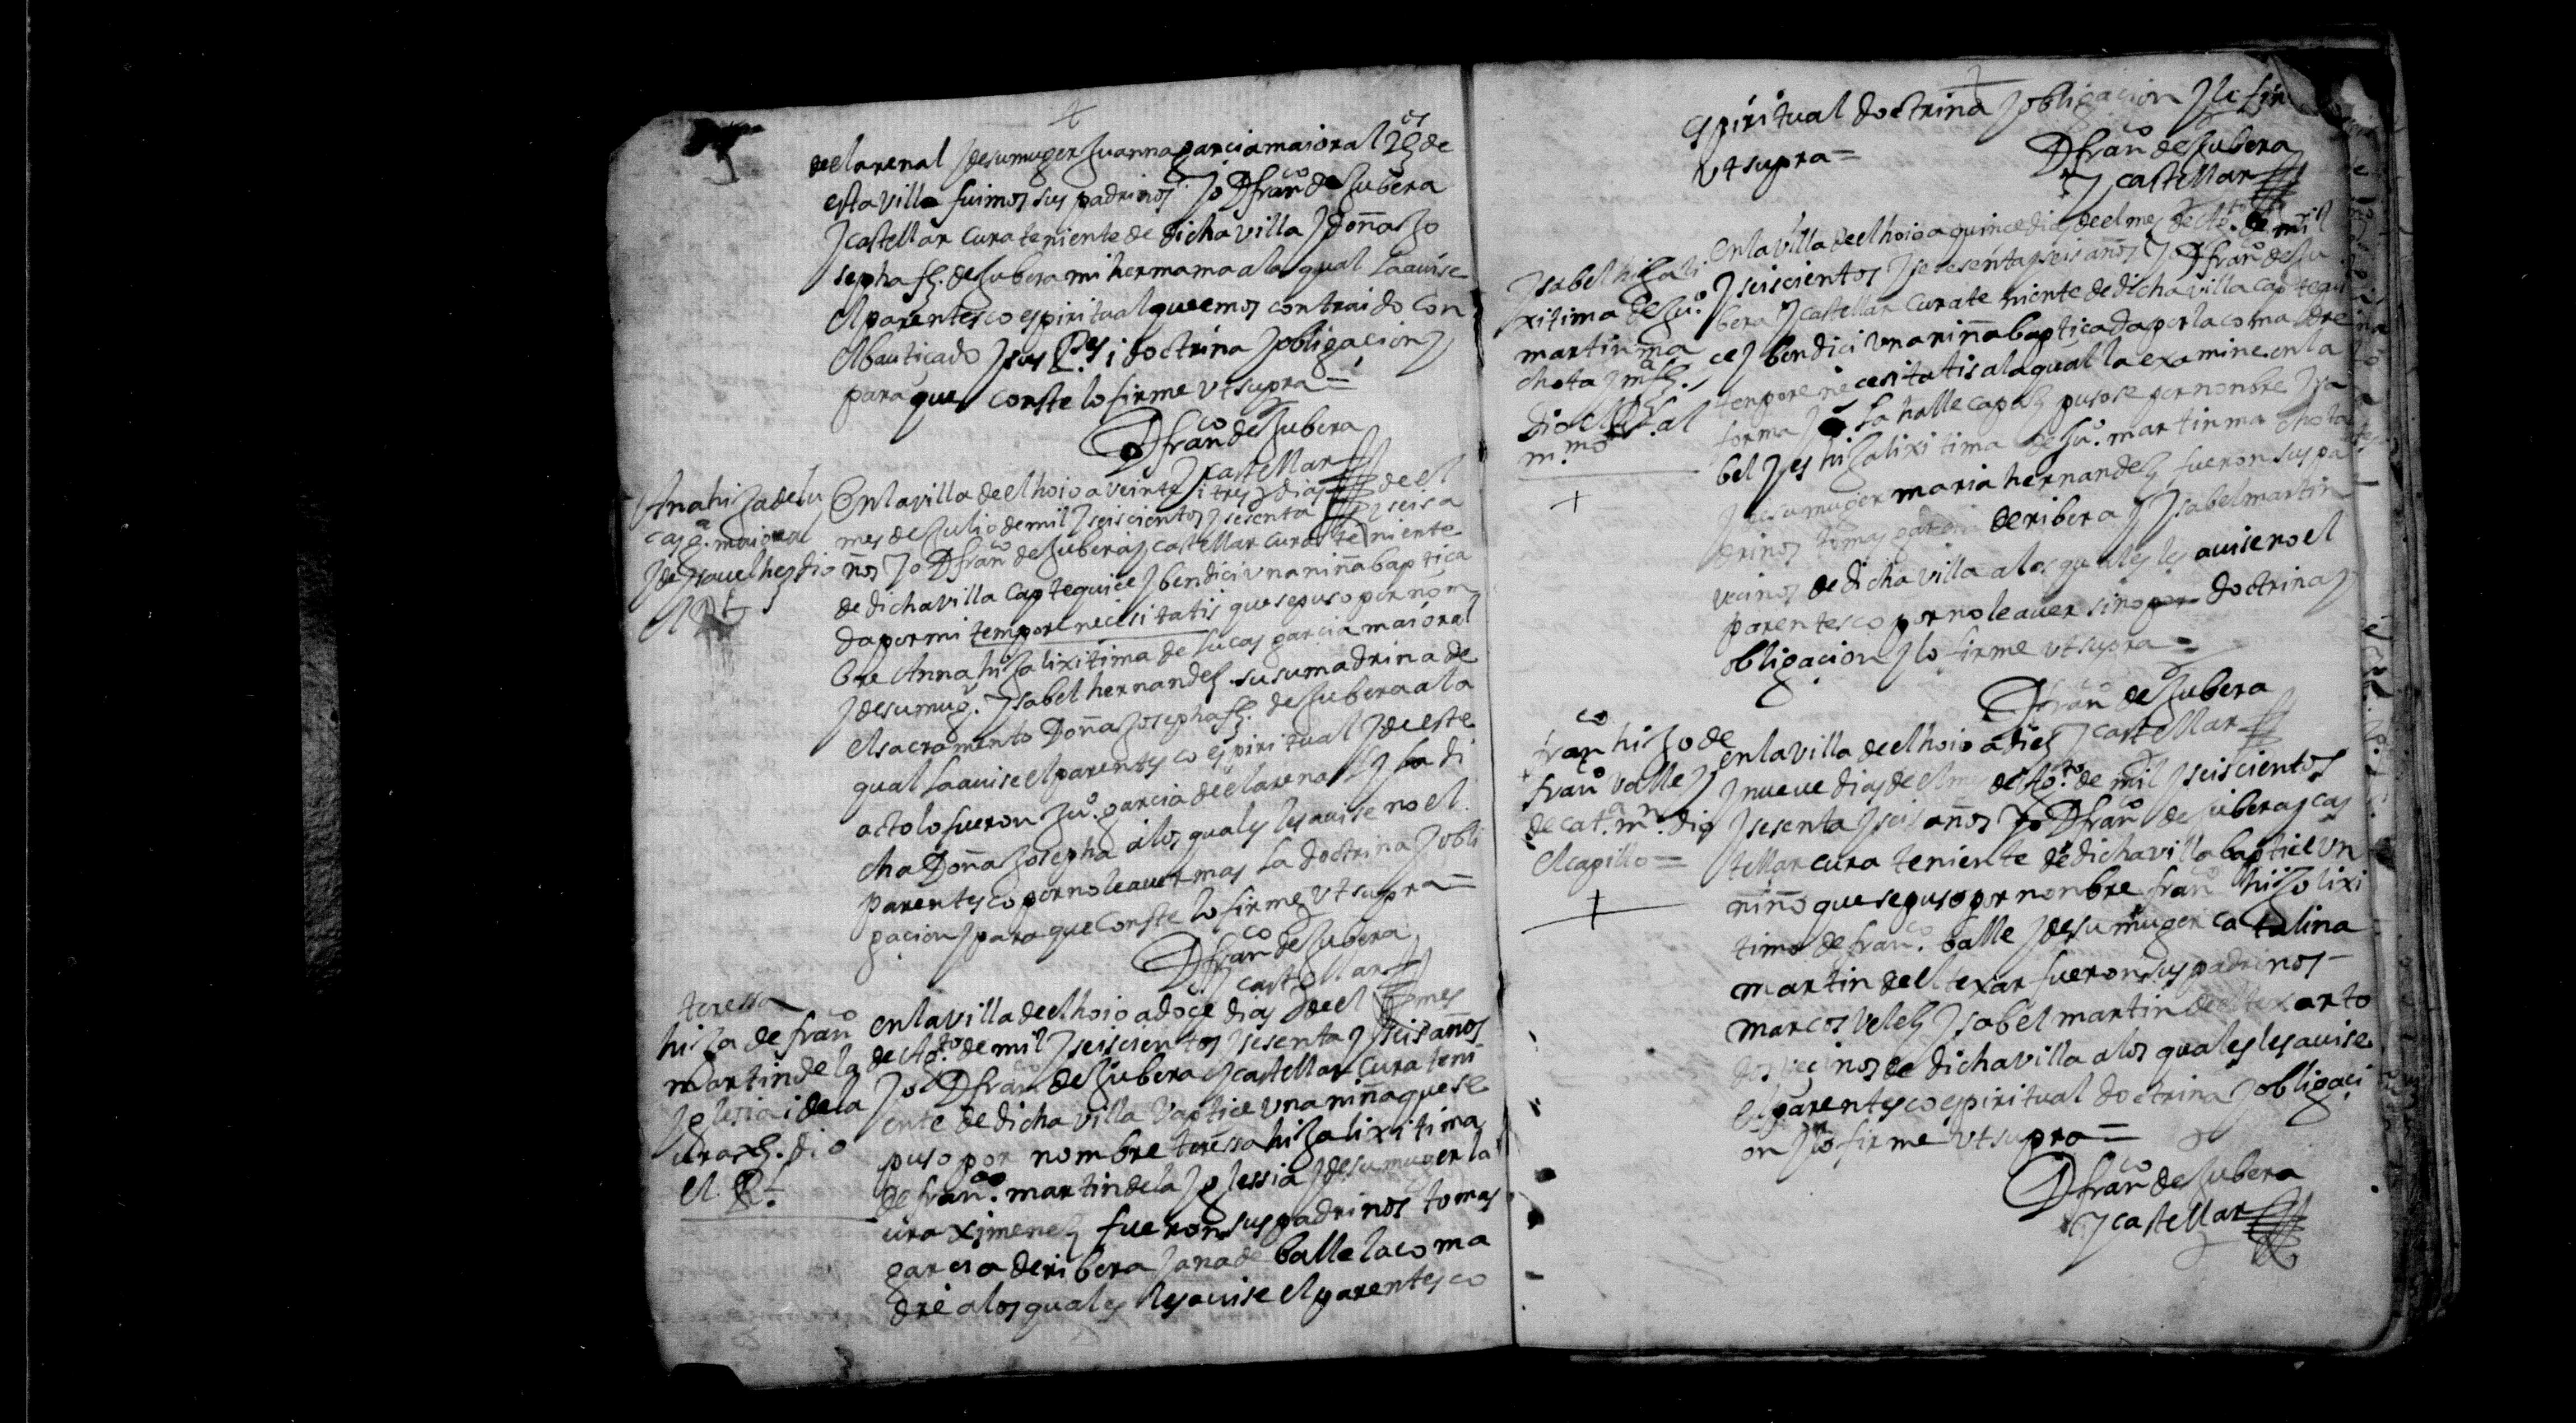 deel arenal y de su muger Juanna garcia maioral de
esta villa fuimos sus padrinos Yo D franco de Zubera
y castellar cura teniente de dicha villa y doña Jo
sepha fz. de Zubera mi hermama a la qual la auise
el parentesco espiritual que emos contraido con
el bautiçado y sus i doctrina y obligacion y
para que conste lo firme vt supra =
D franco de Zubera
y castellar
Ana hija de lu
cas ga. maioral
y de ysauel hez dio
el
En la villa de el hoio a veinte i tres dias de el
mes de Julio de mil y seiscientos y sesenta y seis a
ños Yo D franco de Zubera y castellar cura te niente
de dicha villa captequice y bendici vna niña baptica
da por mi tempore necisitatis que se puso por nom
bre Anna hija lixitima de lucas garcia maioral
y de su mug. Ysabel hernandez su madrina de
el sacramento Doña Josepha fz. de Zubera a la
qual la auise el parentesco espiritual y de este
acto lo fueron Ju.o garcia de el arenal y la di
cha Doña Josepha a los quales les auise no el
parentesco por no le auer mas la doctrina y obli
gacion y para que conste lo firme vt supra =
D franco de Zubera
y castellar
teressa
hija de franco
martin de la
yglesia i de la
ura xz. dio
el
en la villa de el hoio a doçe dias de el mes
de Ag.to de mil y seiscientos y sesenta y seis años
Yo D franco de Zubera y castellar cura teni
ente de dicha villa vaptice vna niña que se
puso por nombre teressa hija lixitima
de franco. martin de la yglessia y de su muger la
ura ximenez fueron sus padrinos tomas
garcia de ribera y ana de balle la coma
dre a los quales les auise el parentesco
espiritual doctrina y obligacion y lo fir
vt supra =
D franco de Zubera
y castellar
Ysabel hija li
xitima de Ju.o
martin ma
chota y ma fz.
dio el al
m.mo
En la villa de el hoio a quince dias de el mes de Ag.to de mil
y seiscientos y sesenta y seis años Yo D franco de Zu
bera y castellar cura te niente de dicha villa captequi
ce y bendici vna niña bapticada por la comadre
tenpore necesitatis a la qual la examine en la
forma y la halle capaz pusose por nonbre ysa
bel y es hija lixitima de Ju.o martin ma chota
y de su muger maria hernandez fueron sus pa
drinos tomas garcia de ribera y Ysabel martin
vecinos de dicha villa a los quales les auise no el
parentesco por no le auer sino doctrina y
obligacion y lo firme vt supra =
D franco de Zubera
y castellar
franco hijo de
franco valle y
de cat.a mn. dio
el capillo =
en la villa de el hoio a diez
y nueve dias de el mes de Ag.to de mil y seiscientos
y sesenta y seis años Yo D franco de Zubera y cas
tellar cura teniente de dicha villa baptice vn
niño que se puso por nonbre franco hijo lixi
timo de franco. balle y de su muger catalina
martin de el texar fueron sus padrinos
marcos velez Ysabel martin de el texar to
dos vecinos de dicha villa a los quales les auise
el parentesco espiritual doctrina y obligaci
on y lo firme vt supra =
D franco de Zubera
y castellar